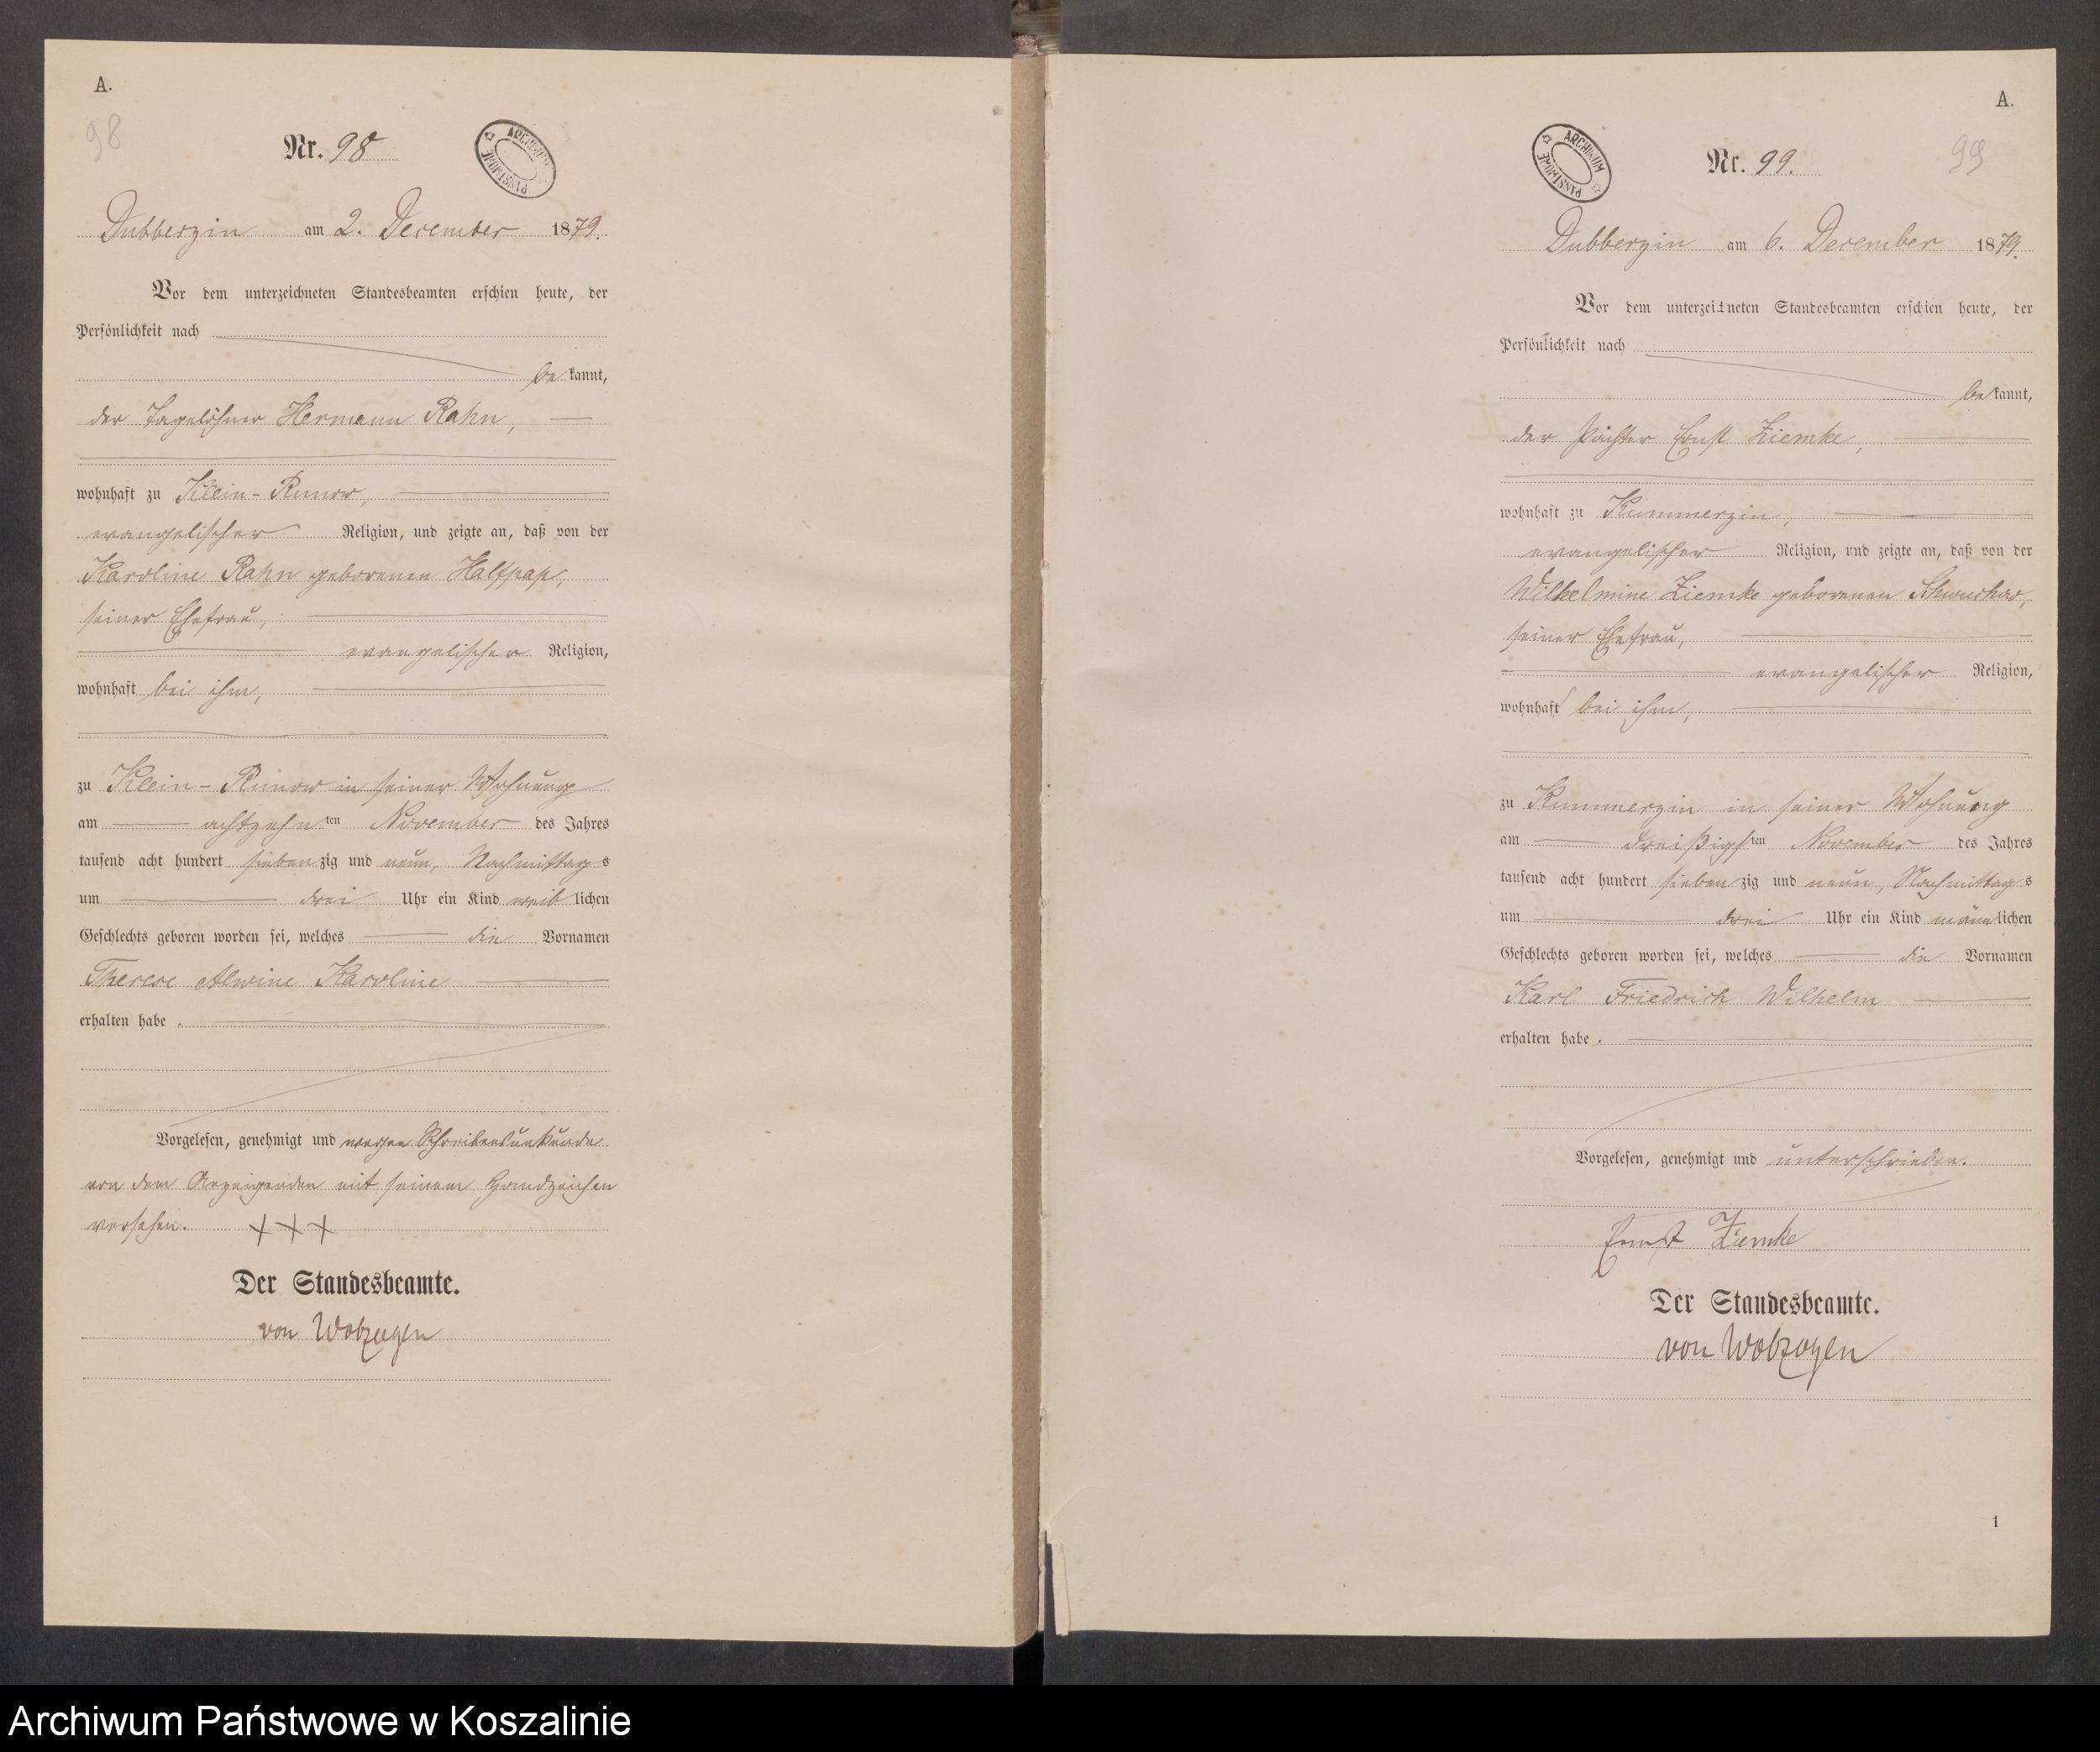 A.
98
Nr. 98
ARCHIWUM PAŃSTWOWE
Dubberzin am 2. December 1879.
Vor dem unterzeichneten Standesbeamten erschien heute, der
Persönlichkeit nach
bekannt,
der Tagelöhner Hermann Rahn,
wohnhaft zu Klein-Runow,
evangelischer Religion, und zeigte an, daß von der
Karoline Rahn geborenen Halfpap,
seiner Ehefrau,
evangelischer Religion,
wohnhaft bei ihm,
zu Klein-Runow in seiner Wohnung
am achtzehnten November des Jahres
tausend acht hundert siebenzig und neun, Nachmittags
um drei Uhr ein Kind weiblichen
Geschlechts geboren worden sei, welches die Vornamen
Therese Alwine Karoline
erhalten habe.
Vorgelesen, genehmigt und wegen Schreibensunkunde
von dem Anzeigenden mit seinem Handzeichen
versehen. +++
Der Standesbeamte.
von Wolzogen
A.
99
Nr. 99.
ARCHIWUM PAŃSTWOWE
Dubberzin am 6. December 1879.
Vor dem unterzeichneten Standesbeamten erschien heute, der
Persönlichkeit nach
bekannt,
der Pächter Ernst Ziemke,
wohnhaft zu Kummerzin,
evangelischer Religion, und zeigte an, daß von der
Wilhelmine Ziemke geborenen
seiner Ehefrau,
evangelischer Religion,
wohnhaft bei ihm,
zu Kummerzin in seiner Wohnung
am dreißigsten November des Jahres
tausend acht hundert siebenzig und neun, Nachmittags
um drei Uhr ein Kind männlichen
Geschlechts geboren worden sei, welches die Vornamen
Karl Friedrich Wilhelm
erhalten habe.
Vorgelesen, genehmigt und unterschrieben.
Ernst Ziemke
Der Standesbeamte.
von Wolzogen
1
Archiwum Państwowe w Koszalinie